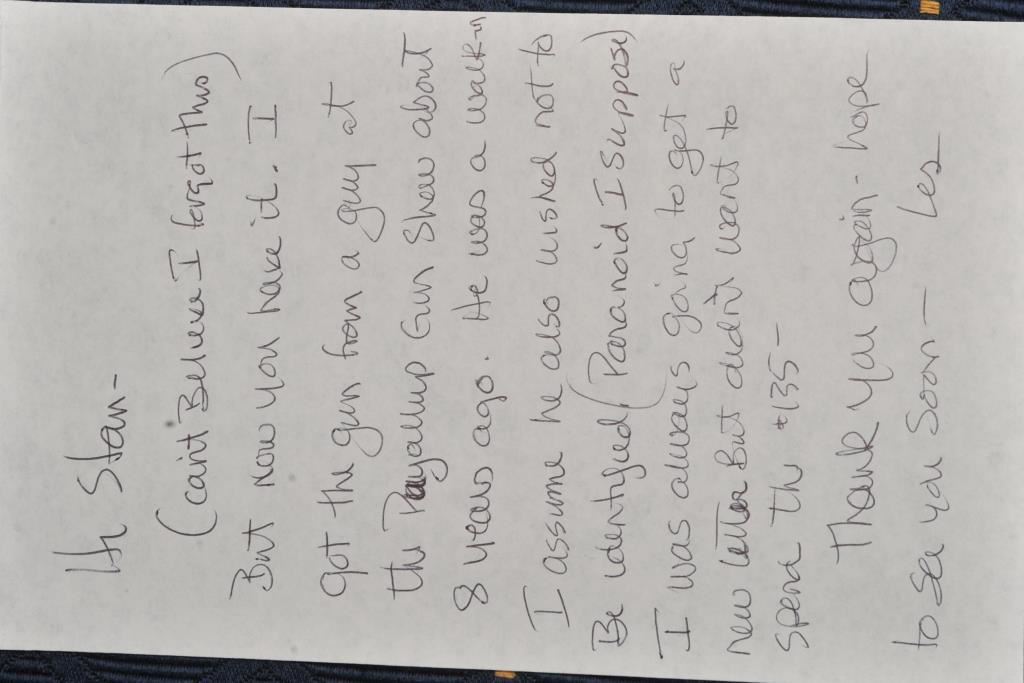 Hi Stan-
(can't Believe I forgot this)
But Now you have it. I
got the gun from a guy at
the Puyallup Gun Show about
8 years ago. He was a walk-in
I assume he also wished not to
Be identified (Paranoid I Suppose)
I was always going to get a
new letter But didn't want to
Spend the $135-
Thank you again- hope
to see you Soon- Les